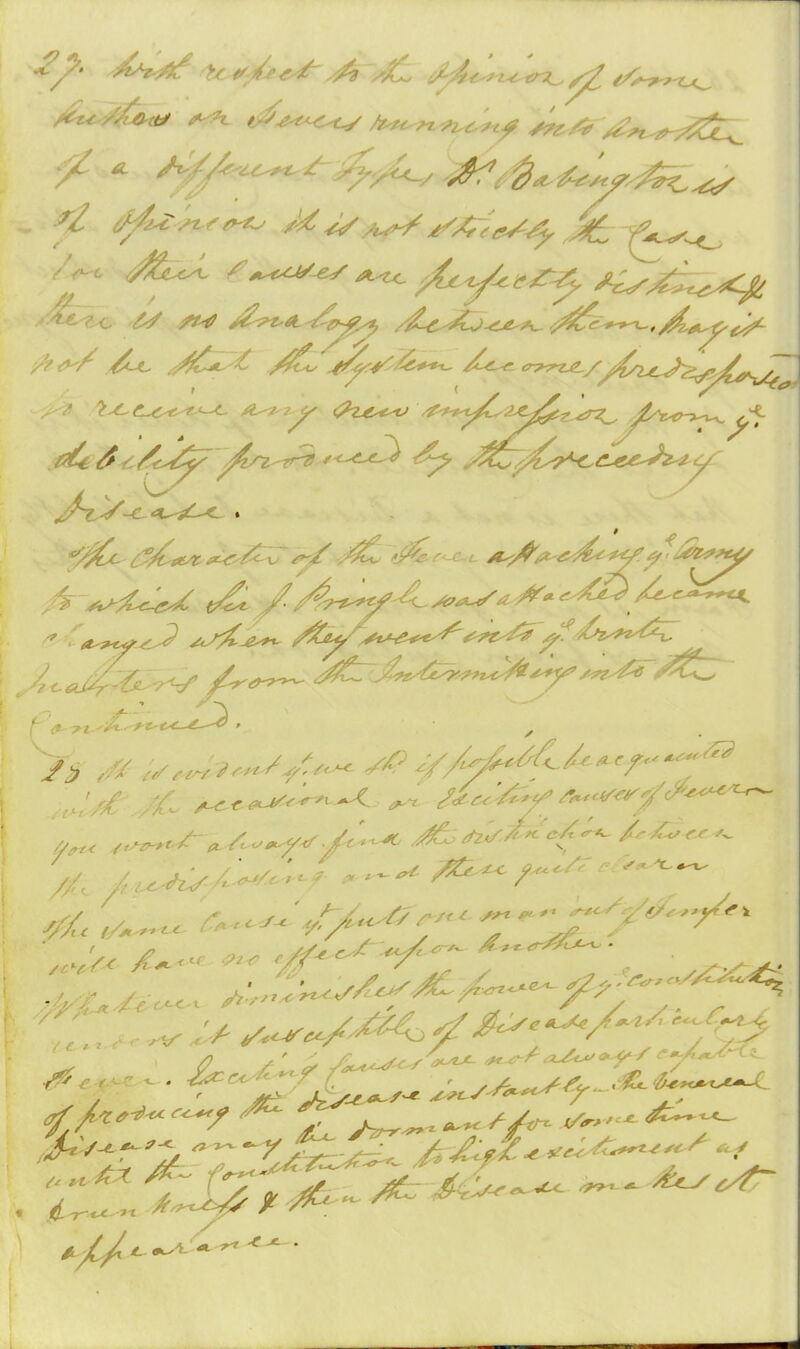 27. With respect to the Opinion of some
Authors on Fevers running into Another
of a different Type, Dr. Babington is
of Opinion it is not strictly the Case
for their Causes are perfectly distinct &
there is no Analogy between them. May it
not be that the System becomes predisposed
to receive any new impression from ye.
debility produced by the preceeding
Disease.
The Character of the Fever attacking ye. Army
to which Sir J. Pringle was attached became
changed when they went into ye. Winter
Quarters from the Intermitting into the
Continued.
28 It is evident yt. we shd. if possible be acquainted
with the occasional or Exciting Causes of Fever
you wont always find the distinction between
the predisposing and these quite clear
The same Cause yt. puts one man out of Temper
will have no effect upon Another.
Whatever diminishes the power of ye. Constitution
renders it susceptible of Disease particularly
Fever. Exciting Causes are not always capable
of producing the disease instantly - The Venereal
Disease may lie dormant for some time
until the Constitution to high excitement as
drunkness & then the Disease makes its
appearance.